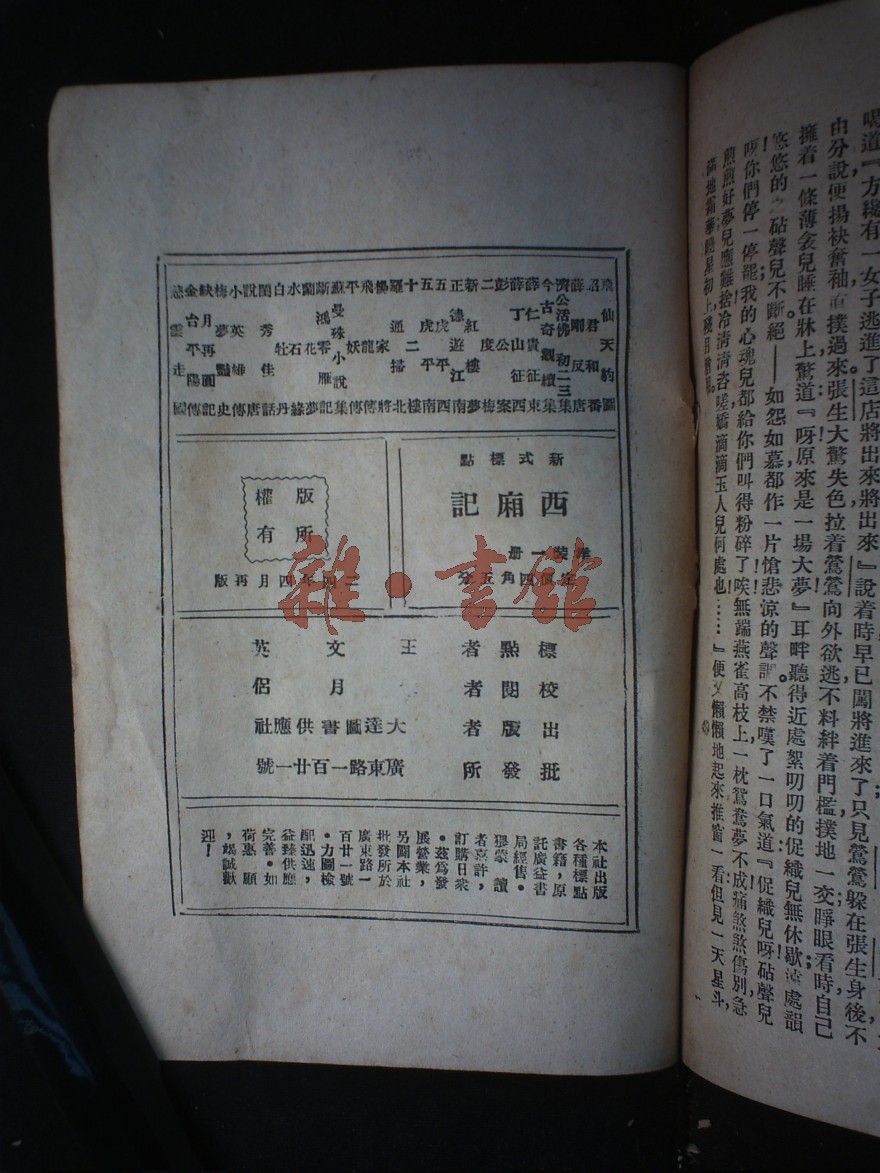 喝道『方纔有一女子逃進了這店將出來將出來』說着時早已闖將進來了只見鶯鶯躲在張生身後不
由分說便揚袂奮袖直撲過來張生大驚失色拉着鶯鶯向外欲逃不料絆着門檻撲地一交睜眼看時自己
擁着一條薄衾兒睡在牀上驚道『呀原來是一場大夢』耳畔聽得近處絮叨叨的促織兒無休歇遠處韻
悠悠的砧聲兒不斷絕——如怨如慕都作一片愴悲涼的聲調不禁嘆了一口氣道『促織兒呀砧聲兒
呀你們停一停罷我的心魂兒都給你們叫得粉碎了唉無端燕雀高枝上一枕鴛鴦夢不成痛煞煞傷別急
煎煎好夢兒應難捨冷清清咨嗟嬌滴滴玉人兒何處也……』便又懶懶地起來推窗一看但見一天星斗
滿地霜華曉星初上殘月
飛仙天豹圖
昭君和番
薛剛反唐
濟公活佛初二三集
今古奇觀續集
薛仁貴征東
薛丁山征西
彭公案
二度梅
新紅樓夢
正德遊江南
五虎平西
五虎平南
十二樓
羅通掃北
楊家將
飛龍傳
平妖傳
蘇曼殊小說集
斷鴻零雁記
蘭花夢
水石緣
白牡丹
閨秀佳話
說唐
小英雄傳
梅夢艷史
缺月再圓記
金台平陽傳
走國
新式標點
西廂記
洋裝一冊
定價四角五分
版權所有
二四年四月再版
標點者 王文英
校閱者 月侶
出版者 大達圖書供應社
批發所 廣東路一百廿一號
本社出版
各種標點
書籍，原
託廣益書
局經售。
猥蒙讀
者喜許，
訂購日衆
。茲爲發
展營業，
另闢本社
批發所於
廣東路一
百廿一號
。力圖檢
配迅速，
益臻供應
完善。如
荷惠顧
，竭誠歡
迎！
雜·書館